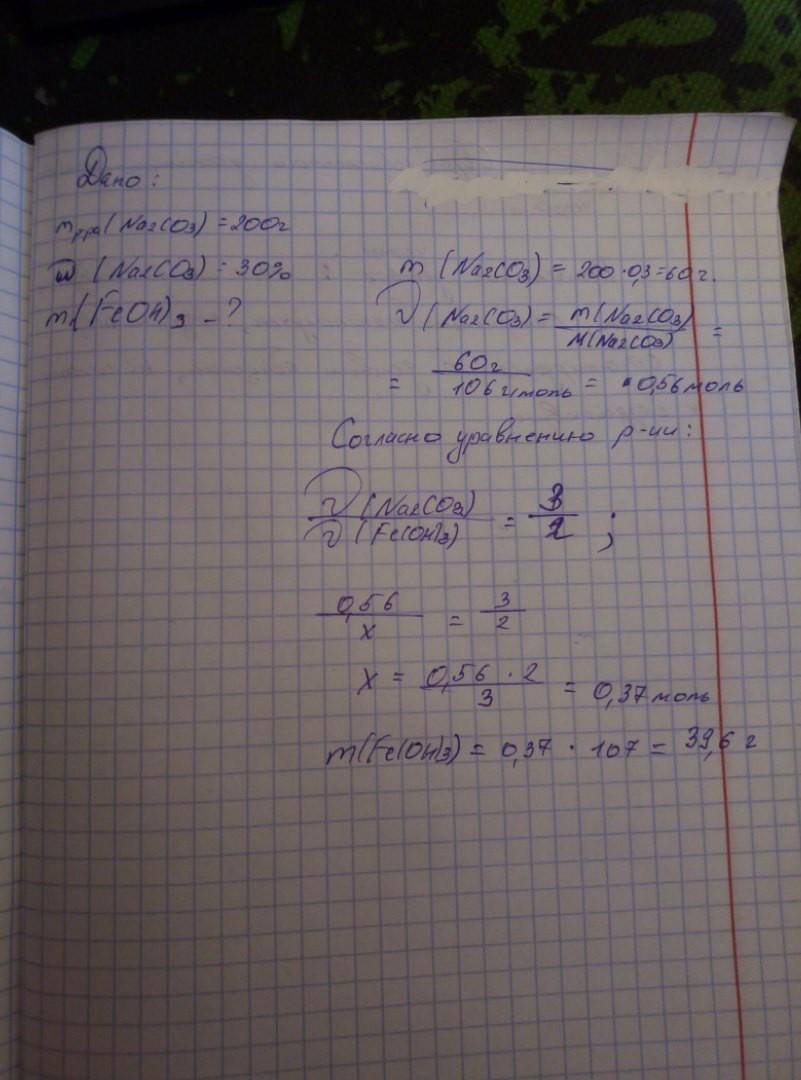 Дано:
m р-ра (Na2CO3) = 200г
ω (Na2CO3) = 30%
m (Fe(OH)3 - ?
m (Na2CO3) = 200 · 0,3 = 60 г.
ν (Na2CO3) = m(Na2CO3) / M(Na2CO3) =
= 60г / 106 г/моль = 0,56 моль
Согласно уравнению р-ии:
ν (Na2CO3) / ν (Fe(OH)3) = 3/2 ;
0,56 / x = 3 / 2
x = 0,56 · 2 / 3 = 0,37 моль
m(Fe(OH)3) = 0,37 · 107 = 39,6 г